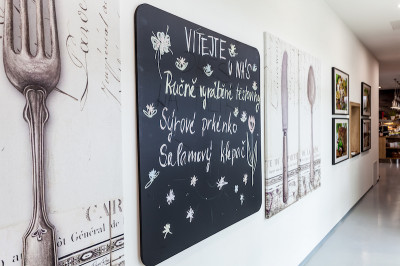 VÍTEJTE
U NÁS
Ručně vyráběné těstoviny
Sýrové prkénko
Salámový
CAR
ôt Général de